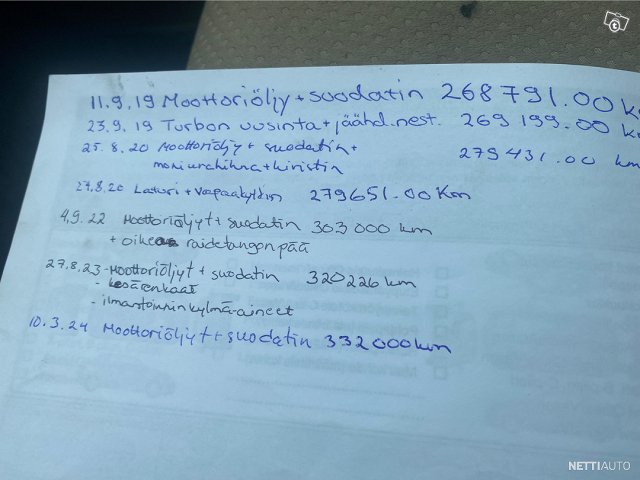 11.9.19 Moottoriöljy + suodatin 268791.00 Km
23.9.19 Turbon uusinta + jäähd.nest. 269199.00 km
25.8.20 Moottoriöljy + suodatin +
moniurahihna + kiristin 279431.00 km
27.8.20 Laturi + Vapaakytkin 279651.00 Km
4.9.22 Moottoriöljyt + suodatin 303000 km
+ oikea raidetangon pää
27.8.23 - Moottoriöljyt + suodatin 320226 km
- kesärenkaat
- ilmastoinnin kylmä-aineet
10.3.24 Moottoriöljyt + suodatin 332000km
NETTIAUTO